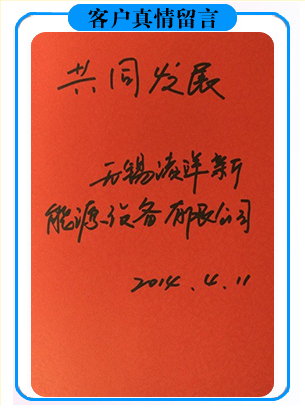 客户真情留言
共同发展
无锡凌洋新
能源设备有限公司
2014.4.11